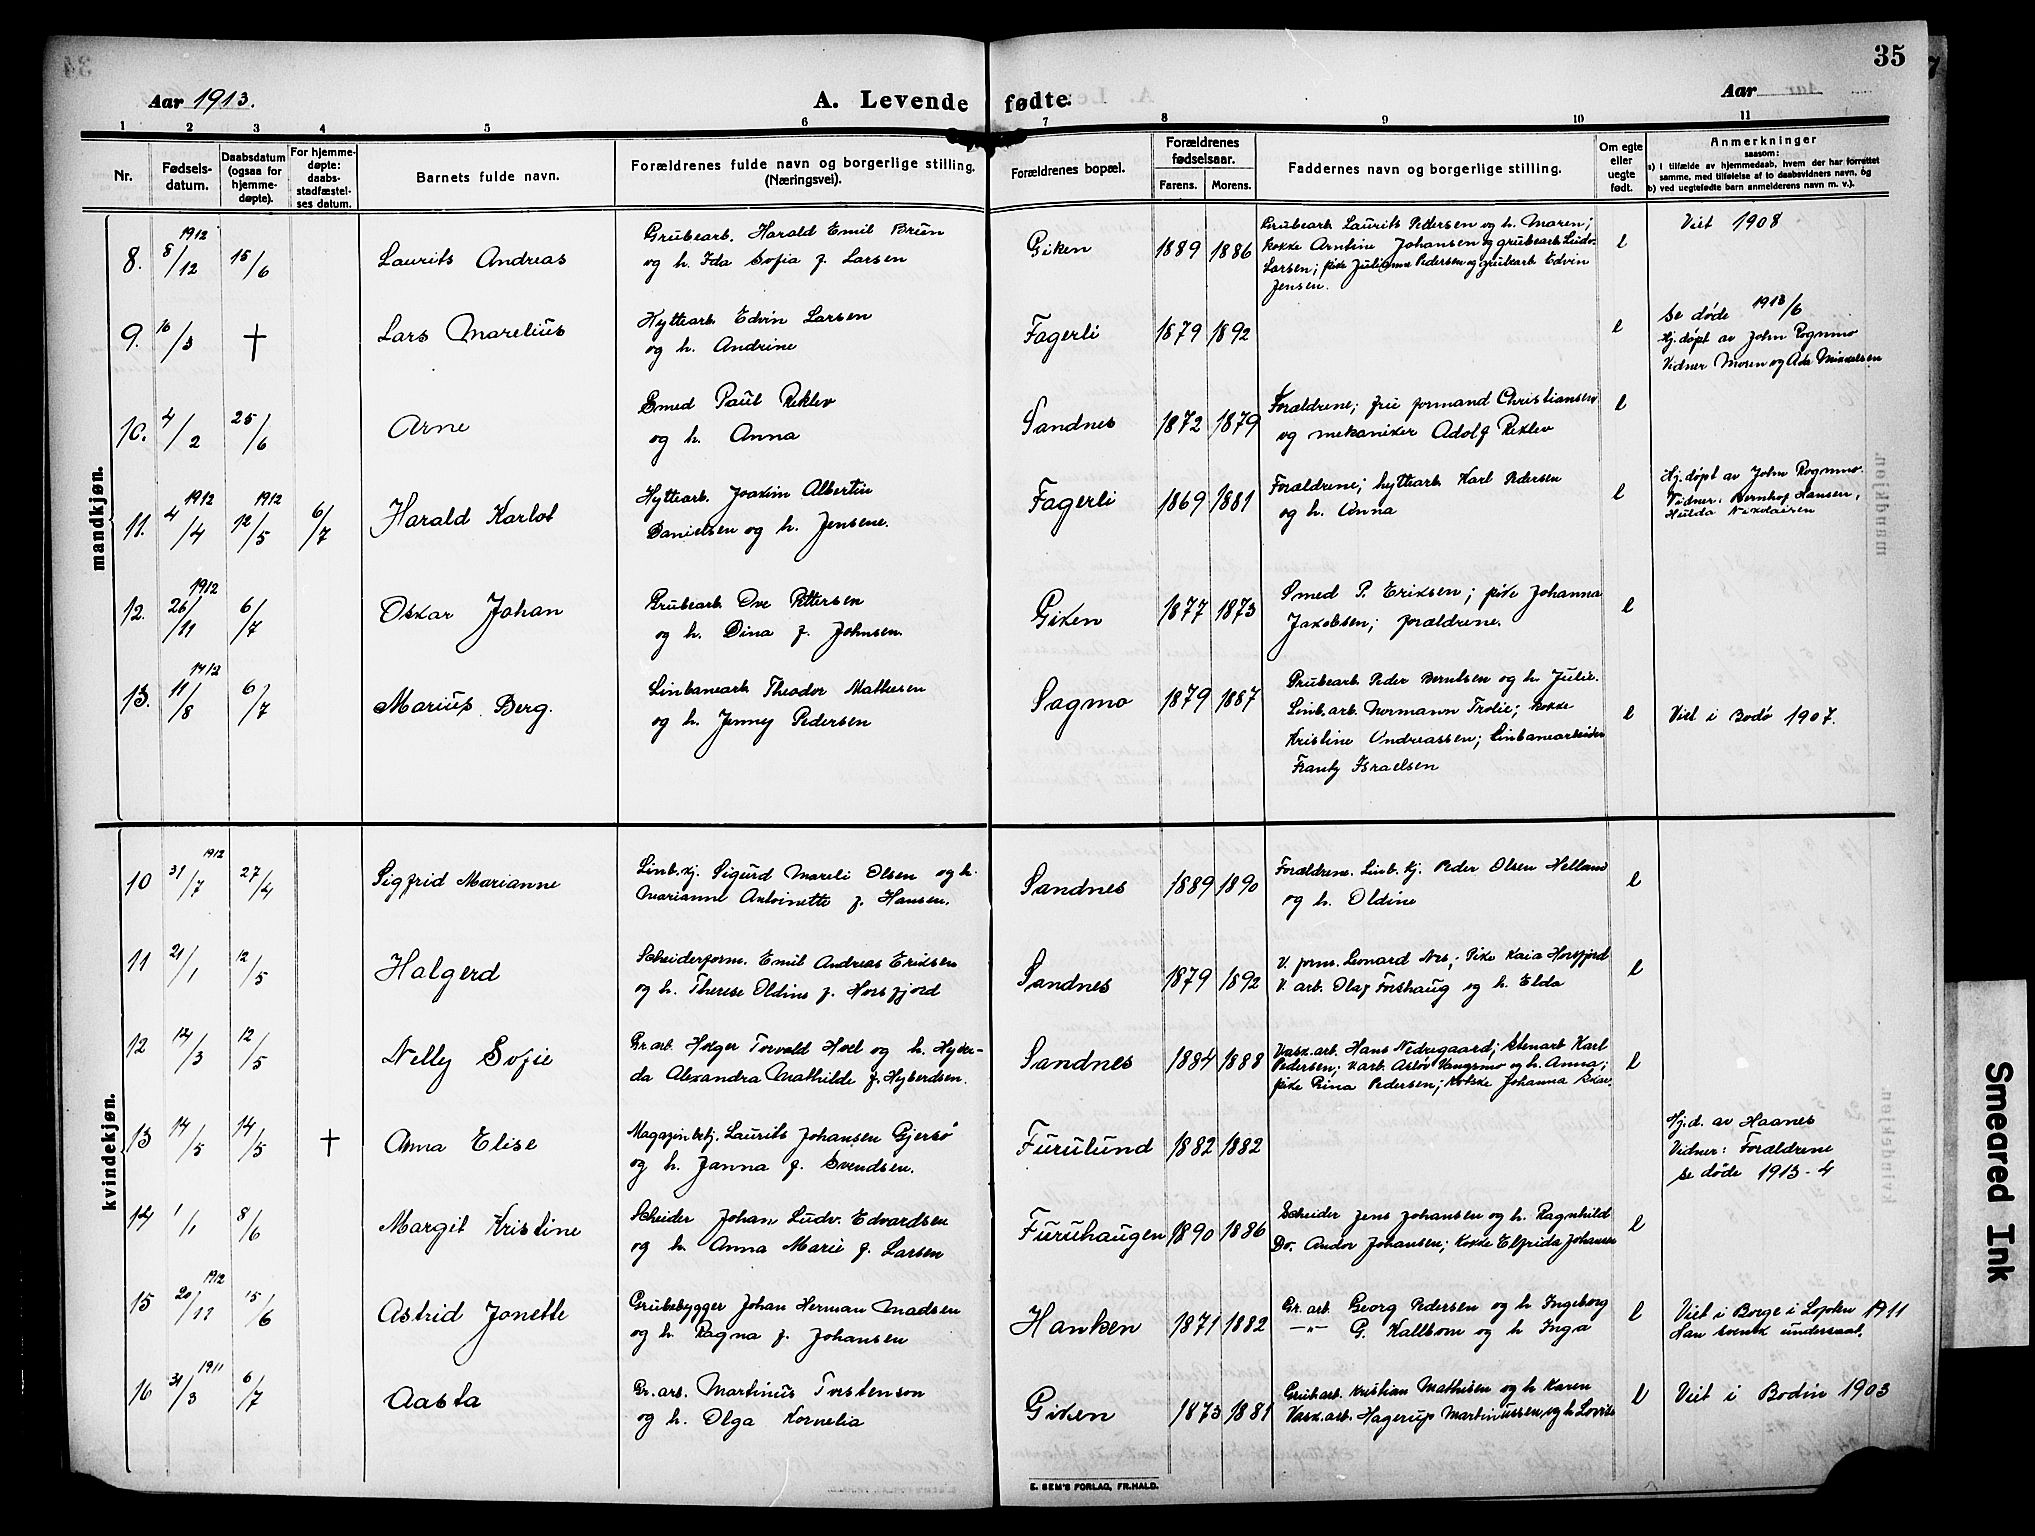 35
Aar 1913.
A. Levende fødte.
Aar
1 2 3 4 5 6 7 8 9 10 11
Nr.
Fødsels-
datum.
Daabsdatum
(ogsaa for
hjemme-
døpte).
For hjemme-
døpte:
daabs-
stadfæstel-
ses datum.
Barnets fulde navn.
Forældrenes fulde navn og borgerlige stilling.
(Næringsvei).
Forældrenes bopæl.
Forældrenes
fødselsaar.
Farens. Morens.
Faddernes navn og borgerlige stilling.
Om egte
eller
uegte
født.
Anmerkninger
saasom:
a) i tilfælde av hjemmedaab, hvem der har forrettet
samme, med tilføielse af to daabsvidners navn, og
b) ved uegtefødte barn anmelderens navn m. v.).
mandkjøn.
8. 1912 8/12 15/6 Laurits Andreas
Grubearb. Harald Emil Brun
og h. Ida Sofia f. Larsen
Giken 1889 1886
Grubearb Laurits Pedersen og h. Maren;
kokke Arntine Johansen og grubearb Ludv.
Larsen; pike Julianna Pedersen og grubearb Edvin
Jensen.
e
Viet 1908
9. 16/3 † Lars Marelius
Hyttearb. Edvin Larsen
og h. Andrine
Fagerli 1879 1892
e
Se døde 1913/6
Hj. døpt av John Rognmo
Vidner Moren og Ada Mikkelsen
10. 4/2 25/6 Arne
Smed Paul Reklev
og h. Anna
Sandnes 1872 1879
Forældrene; fru formand Christiansen
og mekaniker Adolf Reklev
e
11. 1912 4/4 1912 12/5 6/7 Harald Karlot
Hyttearb. Joakim Albertin
Danielsen og h. Jensene.
Fagerli 1869 1881
Forældrene; hyttearb Karl Pedersen
og h. Anna
e
Hj. døpt av John Rognmo.
Vidner: Bernhof Hansen,
Hulda Nikolaisen
12. 1912 26/11 6/7 Oskar Johan
Grubearb Ove Pettersen
og h. Dina f. Johnsen.
Giken 1877 1873
Smed P. Eriksen; pike Johanna
Jakobsen; forældrene.
e
13. 1912 11/8 6/7 Marius Berg.
Linbanearb Theodor Mathesen
og h. Jenny Pedersen
Sagmo 1879 1887
Grubearb Peder Berntsen og h. Julie.
Linb.arb. Normann Trolie; kokke
Kristine Andreassen; Linbanearbeider
Frantz Israelsen
e
Viet i Bodø 1907.
kvindekjøn.
10 1912 31/7 27/4 Sigfrid Marianne
Linb.kj. Sigurd Mareli Olsen og h.
Marianne Antoinette f. Hansen.
Sandnes 1889 1890
Forældrene. Linb. kj. Peder Olsen Helland
og h. Oldine
e
11 21/1 12/5 Halgerd
Scheiderform. Emil Andreas Eriksen
og h. Therese Oldine f. Horsfjord
Sandnes 1879 1892
V. form. Leonard Nes; Pike Kaia Horsfjord
V. arb. Olaf Forshaug og h. Elda
e
12 12/3 12/5 Nelly Sofie
Gr.arb. Holger Torvald Hoel og h. Hyber-
da Alexandra Mathilde f. Hyberdsen.
Sandnes 1884 1888
Vask.arb. Hans Nedregaard; stenarb Karl
Pedersen; v.arb. Asløv Vangsmo og h. Anna;
pike Rina Pedersen; kokke Johanna
e
13 14/5 14/5 † Anna Elise
Magazinbetj. Laurits Johansen Gjersø
og h. Janna f. Svendsen.
Furulund 1882 1882
Hj.d. av Haanes
Vidner: Forældrene
se døde 1913-4
14 1/1 8/6 Margit Kristine
Scheider Johan Ludv. Edvardsen
og h. Anna Marie f. Larsen
Furuhaugen 1890 1886
Scheider Jens Johansen og h. Ragnhild
Do. Andor Johansen; Kokke Elfrida Johansen
e
15 1912 20/11 15/6 Astrid Jonette
Grubebygger Johan Herman Madsen
og h. Ragna f. Johansen
Hanken 1871 1882
Gr. arb. Georg Pedersen og h Ingeborg
—"— G. Kallbom og h Inga
e
Viet i Borge i Lofoten 1911
Han svensk undersaat.
16 1911 31/3 6/7 Aasta
Gr. arb. Martinus Torstenson
og h. Olga Kornelia
Giken 1873 1881
Grub.arb. Kristian Mathisen og h Karen
Vask.arb. Hagerup Martinussen og h Lovise
e
Viet i Bodin 1903
E. SEM'S FORLAG, FR.HALD.
Smeared Ink